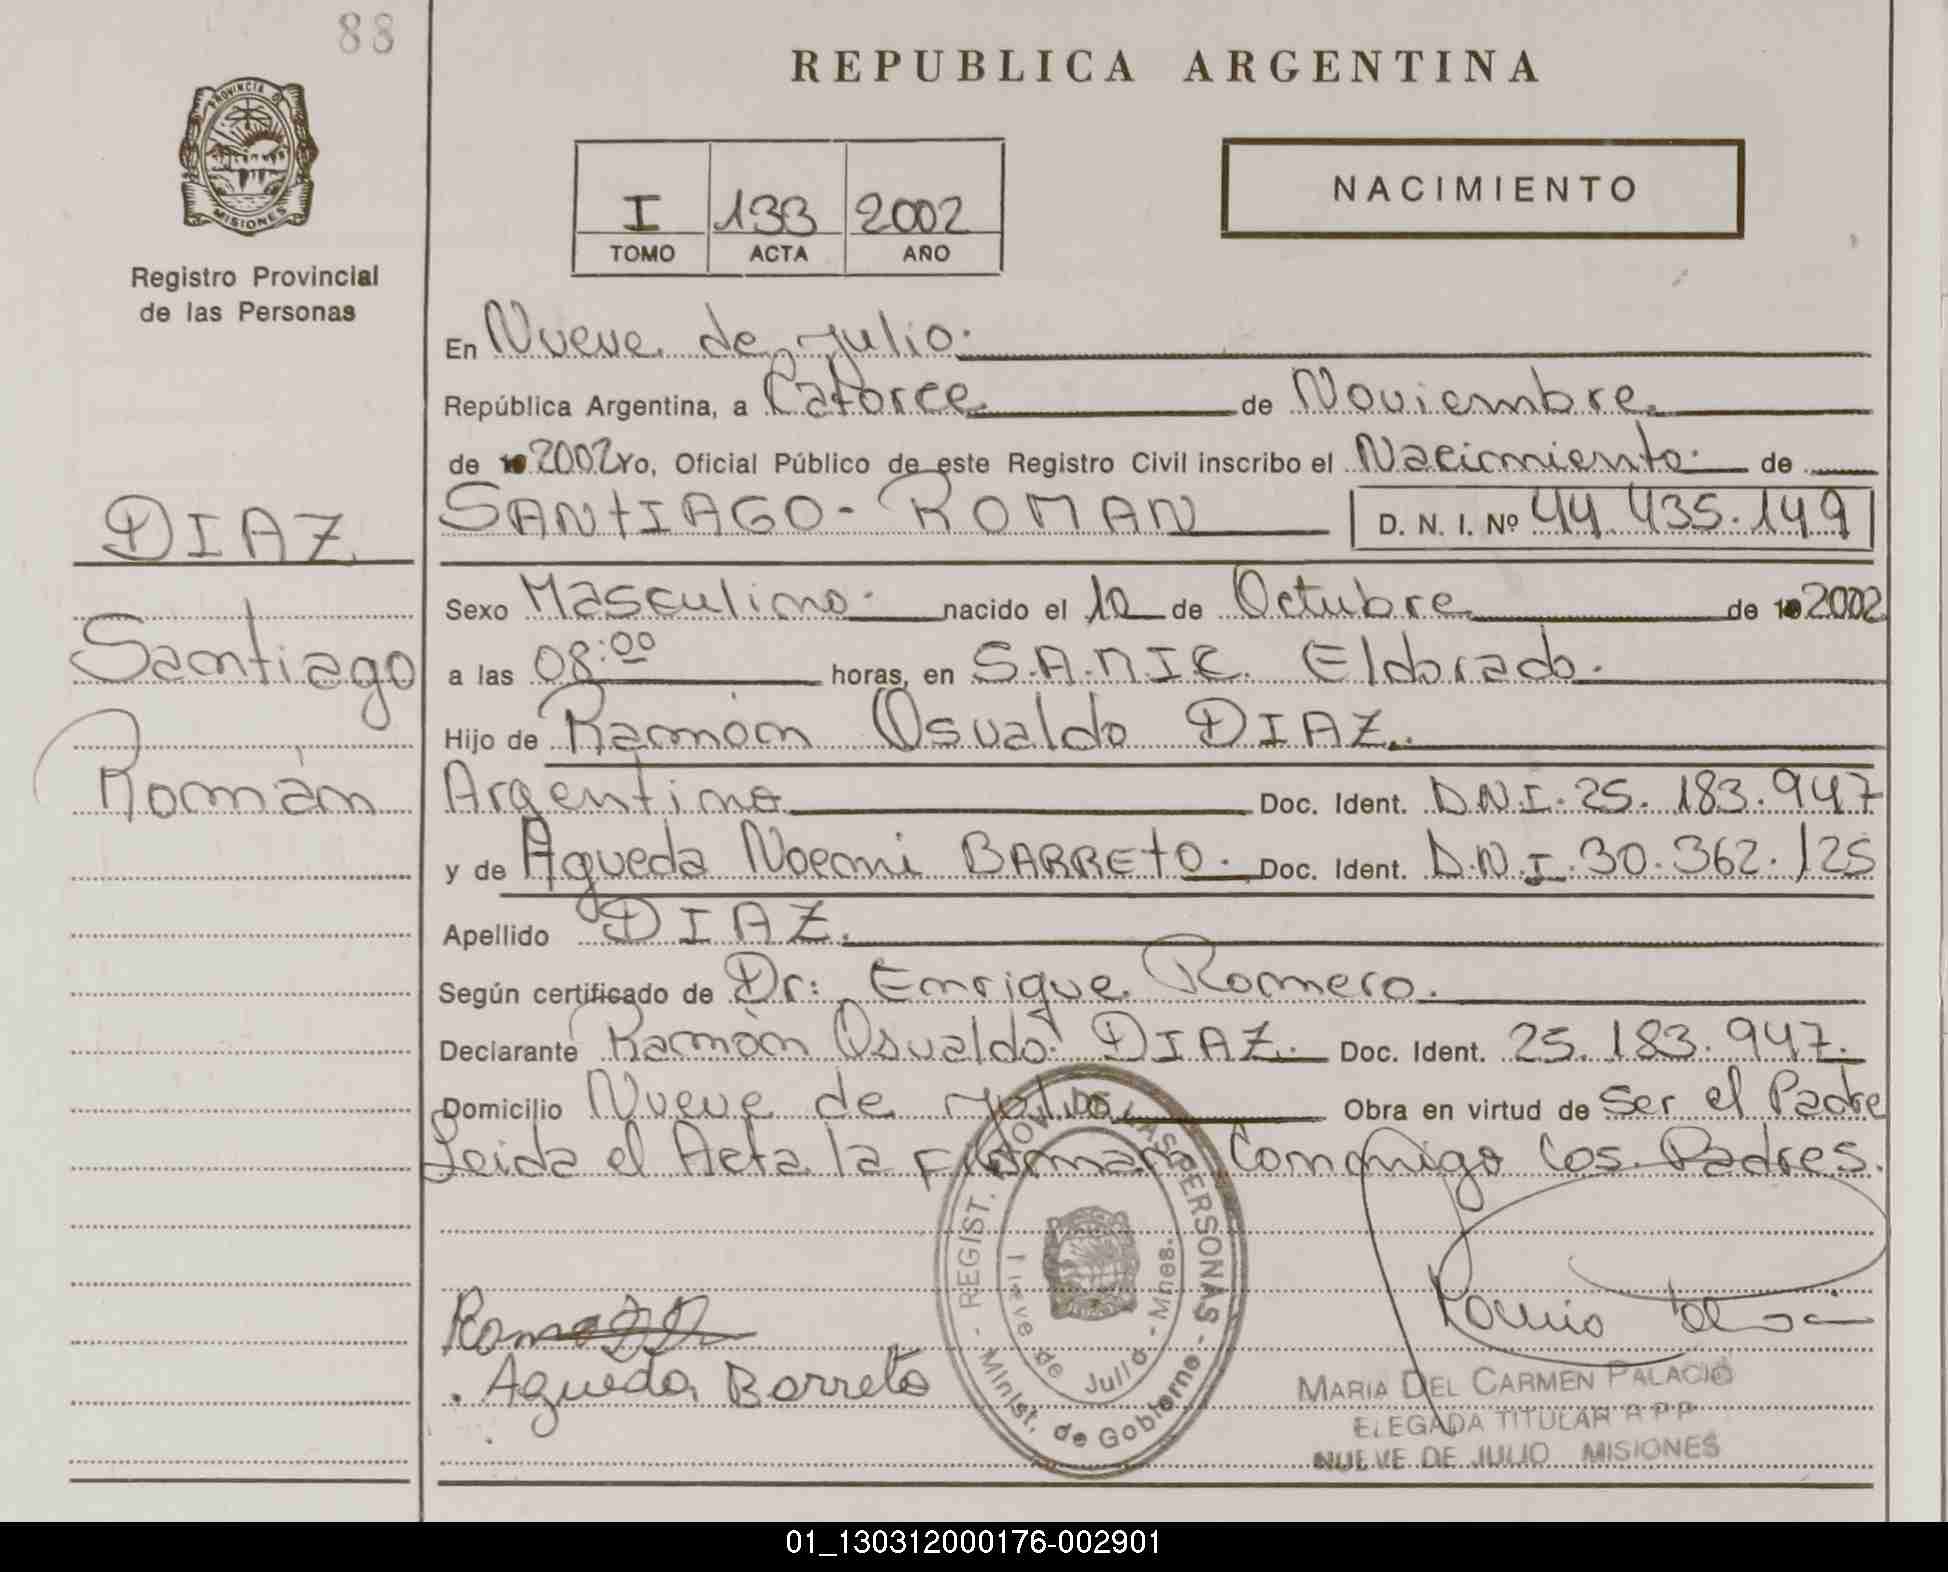 88
REPUBLICA ARGENTINA
PROVINCIA DE
MISIONES
Registro Provincial
de las Personas
I 133 2002
TOMO ACTA AÑO
NACIMIENTO
En Nueve de Julio.
República Argentina, a Catorce de Noviembre
de 2002 yo, Oficial Público de este Registro Civil inscribo el Nacimiento. de
DIAZ
SANTIAGO - ROMAN D. N. I. Nº 44.435.149
Santiago
Román
Sexo Masculino. nacido el 10 de Octubre de 2002
a las 08:00 horas, en S.A.M.I.C. Eldorado.
Hijo de Ramón Osvaldo DIAZ.
Argentino Doc. Ident. D.N.I. 25.183.947
y de Agueda Noemi BARRETO. Doc. Ident. D.N.I. 30.362.125
Apellido DIAZ.
Según certificado de Dr: Enrique Romero.
Declarante Ramón Osvaldo DIAZ. Doc. Ident. 25.183.947.
Domicilio Nueve de Julio. Obra en virtud de ser el Padre
Leida el Acta la firman Conmigo los Padres.
REGIST. PROV. DE LAS PERSONAS
Minist. de Gobierno
Nueve de Julio - Mnes.
Agueda Barreto
MARIA DEL CARMEN PALACIO
ELEGADA TITULAR R P P
NUEVE DE JULIO MISIONES
01_130312000176-002901